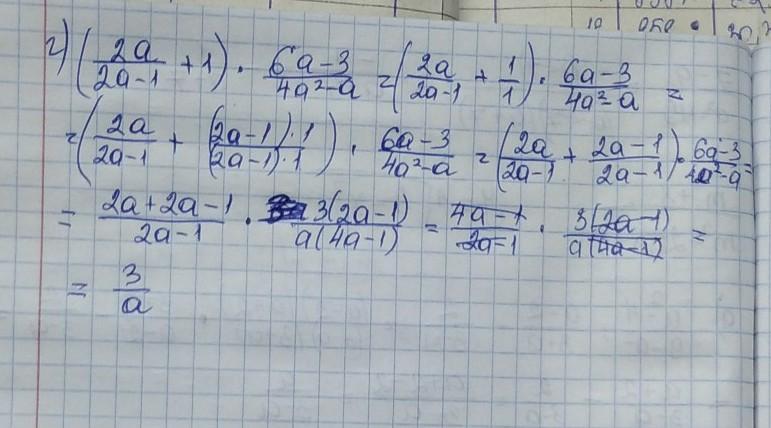 10 050 • 20,
г) (2a/(2a-1) + 1) · (6a-3)/(4a²-a) = (2a/(2a-1) + 1/1) · (6a-3)/(4a²-a) =
= (2a/(2a-1) + ((2a-1)·1)/((2a-1)·1)) · (6a-3)/(4a²-a) = (2a/(2a-1) + (2a-1)/(2a-1)) · (6a-3)/(4a²-a) =
= (2a+2a-1)/(2a-1) · 3(2a-1)/(a(4a-1)) = (4a-1)/(2a-1) · 3(2a-1)/(a(4a-1)) =
= 3/a